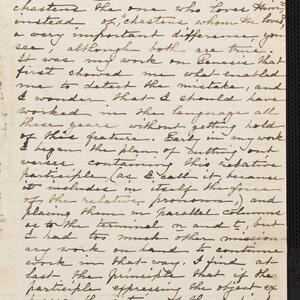 chastens the one who loves Him,"
instead of "chastens whom He loves",
a very important difference, you
see, although both are true.
It was my work on Genesis that
first showed me what enabled me
to detect the mistake, and
I wonder that I should have
worked in the language all
these years without getting hold
of this feature. Early in my work
I began the plan of cutting out
verses containing this relative
participle (as I call it, because
it includes in itself the force
of the relative pronoun,) and
placing them in parallel columns
as to the terminal n and t; but
I had too much other mission
ary work on hand to continue
work in that way. I find at
last the principle that if the
participle expressing the object ex